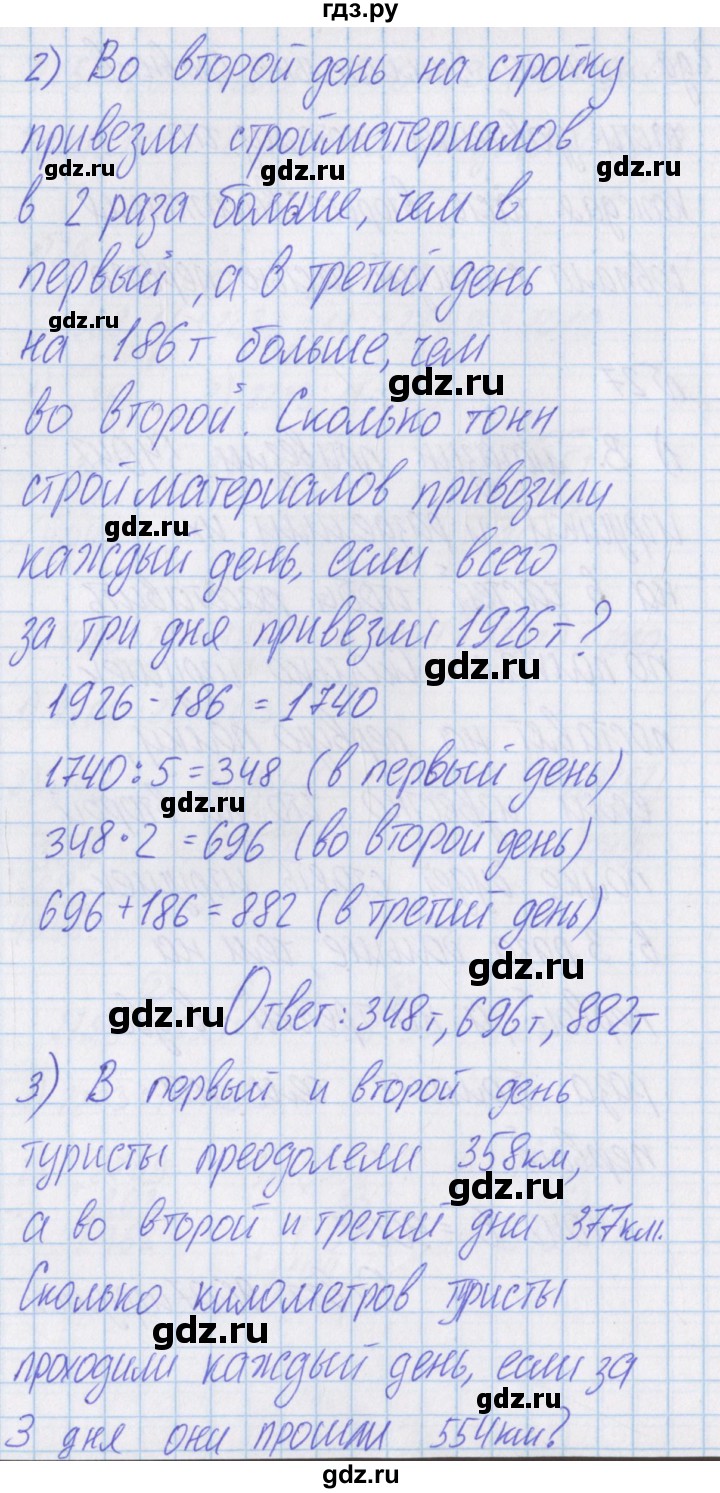 гдз.ру
2) Во второй день на стройку
привезли стройматериалов
gdz.ru gdz.ru gdz.ru
в 2 раза больше, чем в
первый, а в третий день
gdz.ru
на 186т больше, чем
gdz.ru
во второй. Сколько тонн
стройматериалов привозили
gdz.ru
каждый день, если всего
за три дня привезли 1926т?
gdz.ru
1926 - 186 = 1740
1740 : 5 = 348 (в первый день)
gdz.ru
348 · 2 = 696 (во второй день)
696 + 186 = 882 (в третий день)
gdz.ru
gdz.ru
Ответ: 348т, 696т, 882т
3) В первый и второй день
туристы преодолели 358км,
gdz.ru
а во второй и третий дни 377км.
Сколько километров тристы
gdz.ru
проходили каждый день, если за
gdz.ru
3 дня они прошли 554км?
gdz.ru